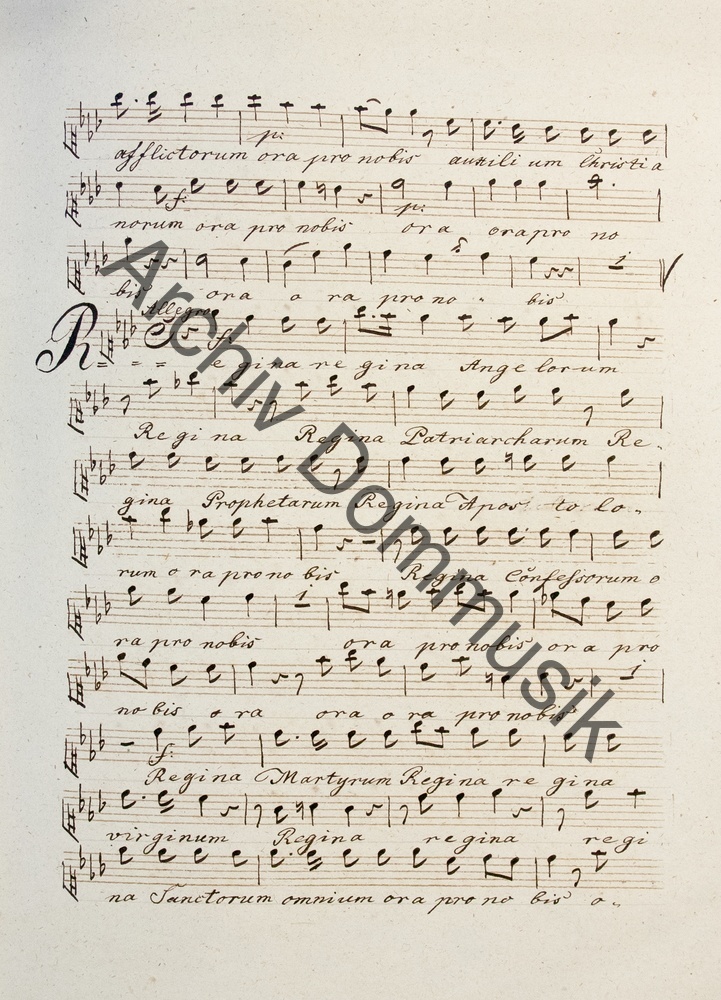 p:
afflictorum ora pro nobis auxilium Christia
f: p:
norum ora pro nobis ora ora pro no
1
bis ora o ra pro no - bis
Allegro f:
R - - - egina re gina Angelorum
Regina Regina Patriarcharum Re-
gina Prophetarum Regina Apos to lo-
rum o ra pro no bis Regina Confessorum o
1
ra pro nobis ora pro nobis ora pro
1
no bis o ra ora o ra pro nobis
f:
Regina Martyrum Regina re gina
virginum Regina regina regi
na Sanctorum omnium ora pro no bis o-
Archiv Dommusik